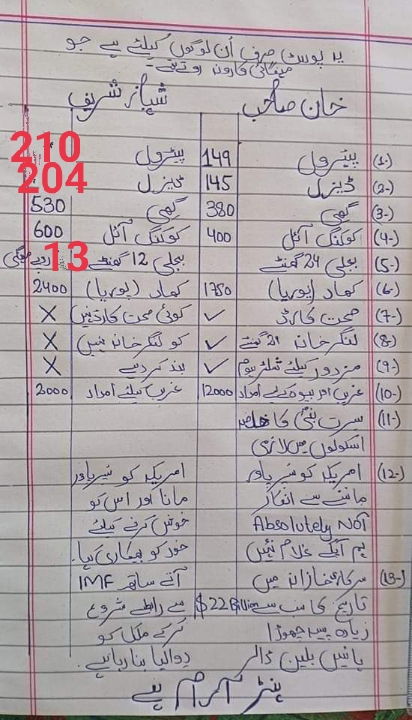 یہ پوسٹ صرف اُن لوگوں کیلئے ہے جو
مہنگائی کا رونا روتے تھے۔
خان صاحب شہباز شریف
(1-) پیٹرول 149 پیٹرول 210
(2-) ڈیزل 145 ڈیزل 204
(3-) گھی 380 گھی 530
(4-) کوکنگ آئل 400 کوکنگ آئل 600
(5-) بجلی 24 گھنٹے بجلی 12 گھنٹے 13 روپے مہنگی
(6-) کھاد (یوریا) 1750 کھاد (یوریا) 2400
(7-) صحت کارڈ ✓ کوئی صحت کارڈ نہیں X
(8-) لنگر خانہ گھنٹے ✓ کو لنگر خانہ نہیں X
(9-) مزدور کیلئے شیلٹر ہوم ✓ بند کر دیے X
(10-) غریب اور بیوہ کیلئے امداد 12000 غریب کیلئے امداد 2000
(11-) سیرت نبیؐ کا
اسکولوں میں لازمی
(12-) امریکہ کو سپر پاور امریکہ کو سپر پاور
ماننے سے انکار مانا اور اس کو
Absolutely NOT خوش کرنے کیلئے
ہم آپکے غلام نہیں خود کو بھکاری کہا۔
(13-) سرکاری خزانے میں آتے ساتھ IMF
تاریخ کا سب سے $22 Billion سے رابطے شروع
زیادہ پیسہ چھوڑا کر کے ملک کو
بائیس بلین ڈالر دوالیا بنا رہا ہے۔
ہے